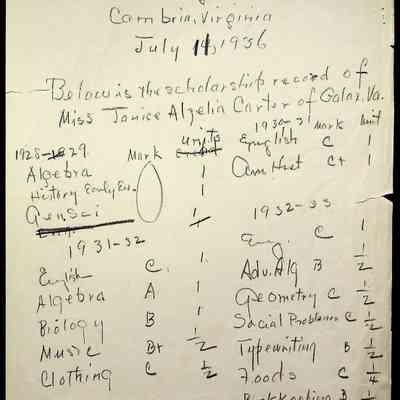 Cambria, Virginia
July 14, 1936
Below is the scholarship record of
Miss Janice Algelia Carter of Galax, Va.
1928-29 Mark Units
Algebra 1
History Early Eu. 1
Gen Sci 1
1931-32
English C. 1
Algebra A 1
Biology B 1
Music B+ 1/2
Clothing C 1/2
1930-31 Mark Unit
English C 1
Am Hist C+ 1
1932-33
Eng. C 1
Adv. Alg B 1/2
Geometry C 1/2
Social Problems C 1/2
Typewriting B 1/2
Foods C 1/4
Bookkeeping B